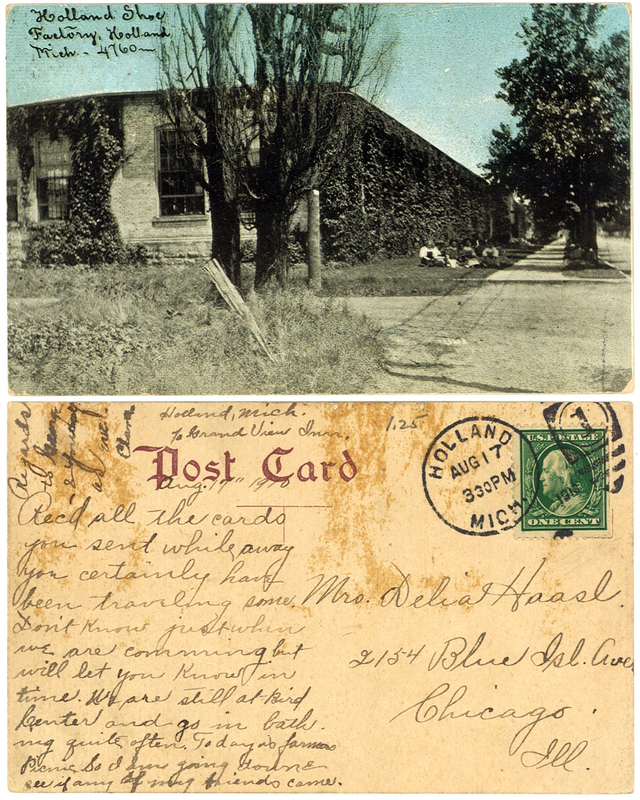 Holland Shoe
Factory, Holland
Mich. - 4760
Regards
to
&
at
Clara
Holland, Mich.
% Grand View Inn,
1.25
Post Card
Aug. 17" 1910
HOLLAND
AUG 17
330PM
MICH.
U.S. POSTAGE
ONE CENT
Rec'd all the cards
you sent while away
you certainly have
been traveling some.
Don't know just when
we are comming but
will let you know in
time. We are still at Bird
Center and go in bath-
ing quite often. Today is farmers
Picnic So I am going down &
see if any of my friends came.
Mrs. Delia Haasl.
2154 Blue Isl. Ave
Chicago.
Ill.